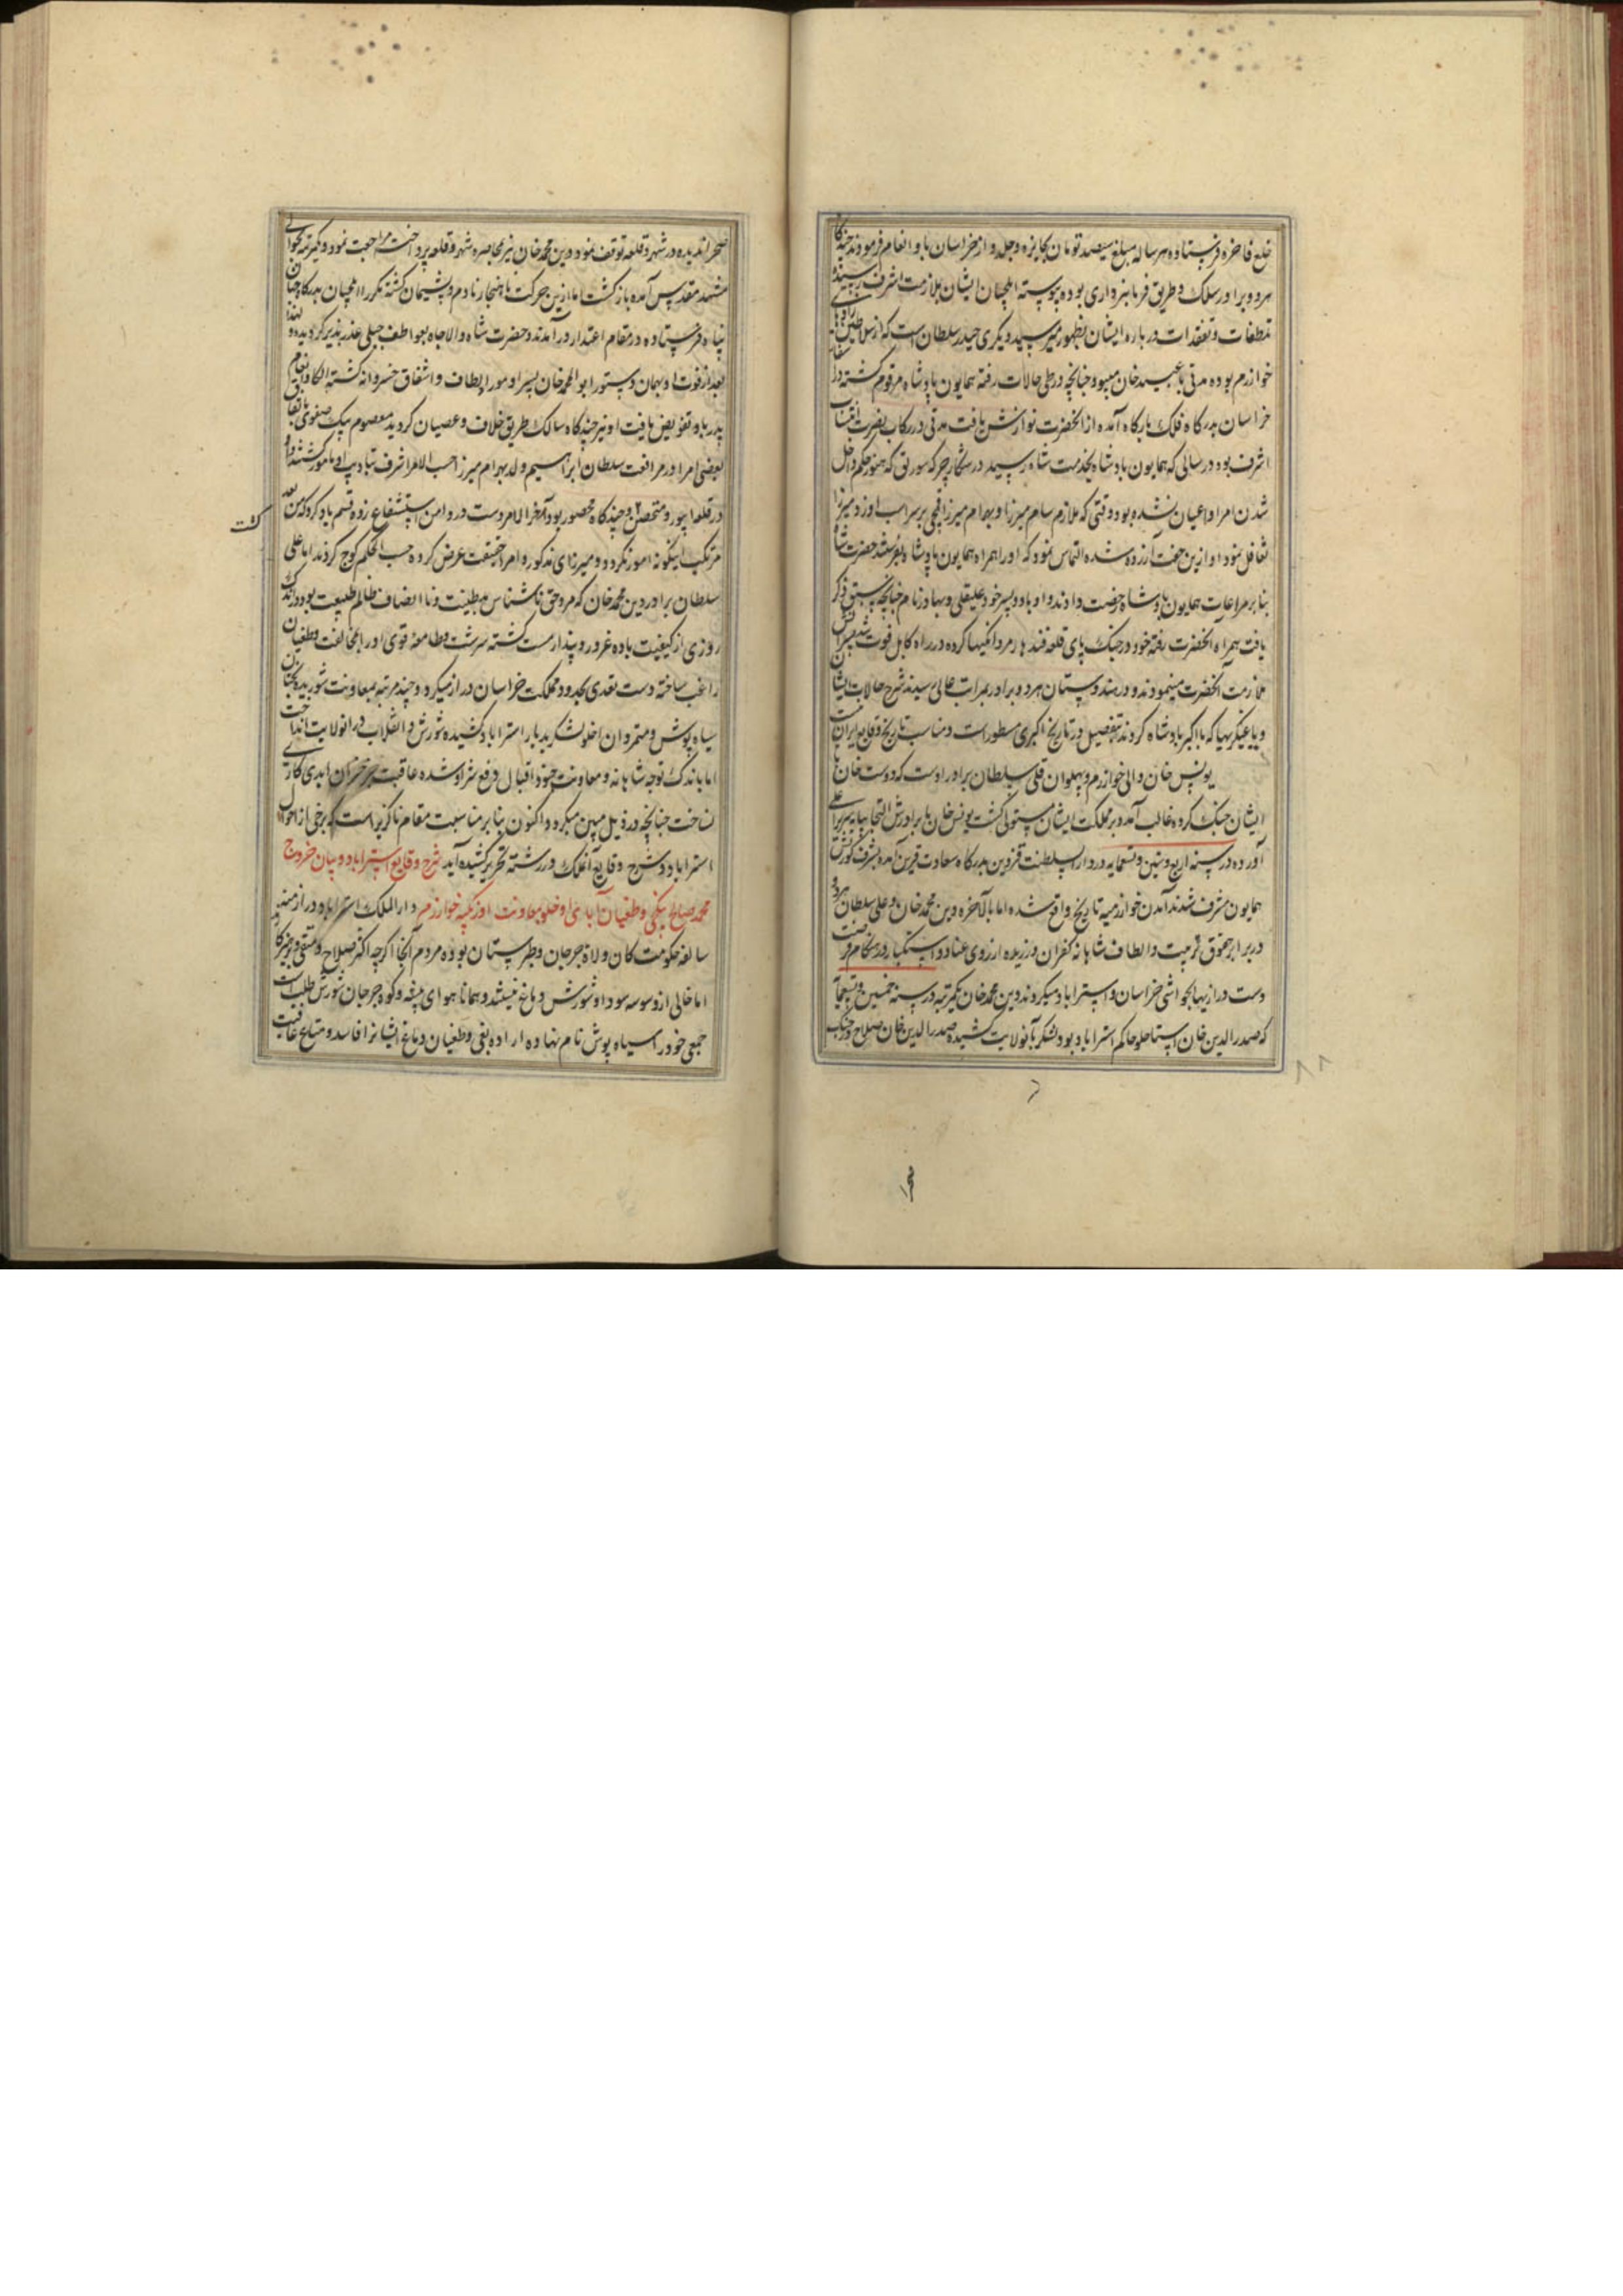 خلع فاخره فرستاده هر ساله مبلغ سیصد تومان بجایزه و جلدو از خراسان باو انعام فرمودند چندگاه
هر دو برادر سلک و طریق فرمانبرداری بوده پیوسته ایلچیان ایشان بملازمت اشرف رسیده
تلطفات و تفقدات درباره ایشان بظهور میرسید دیگری حیدر سلطان است که از سلاطین زاده‌های
خوارزم بوده مدتی با عبید خان میبود چنانچه در طی حالات رفته همایون پادشاه مرقوم گشته در
خراسان بدرگاه فلک بارگاه آمده از آنحضرت نوازش یافت مدتی در رکاب نصرت انتساب
اشرف بود در سالی که همایون پادشاه بخدمت شاه رسید در شکار جرگه سورلق که هنوز حکم داخل
شدن امرا و اعیان نشده بود وقتی که ملازم سام میرزا و بهرام میرزا قمچی بر سر اسب او زد میرزا
تغافل نمود او ازین خفت آزرده شده التماس نمود که او را همراه همایون پادشاه بفرستند حضرت شاه
بنابر مراعات همایون پادشاه رخصت دادند و او با دو پسر خود علیقلی و بهادر نام چنانچه سبق ذکر
یافت همراه آنحضرت رفته خود در جنگ پای قلعه قندهار مردانگیها کرده در راه کابل فوت شد پسرانش
ملازمت آنحضرت مینمودند و در هندوستان هر دو برادر بمراتب عالی رسیدند شرح حالات ایشان
و یاغیگریها که با اکبر پادشاه کردند بتفصیل در تاریخ اکبری مسطور است و مناسب تاریخ وقایع ایران نیست
یونس خان والی خوارزم و پهلوان قلی سلطان برادر اوست که دوست خان با
ایشان جنگ کرده غالب آمد و بر مملکت ایشان مستولی گشت یونس خان با برادرش التجا بپایه سریر اعلی
آورده در سنه اربع و ستین و تسعمایه در دار السلطنت قزوین بدرگاه سعادت قرین آمده بشرف کورنش
همایون مشرف شدند آمدن خوارزمیه تاریخ واقع شده اما بالآخره دین محمد خان و علی سلطان هر دو
در برابر حقوق تربیت و الطاف شاهانه کفران ورزیده از روی عناد و استکبار در هنگام فرصت
دست درازیها بحواشی خراسان و استراباد میکردند دین محمد خان یکمرتبه در سنه خمسین و تسعمایه
که صدر الدین خان استاجلو حاکم استراباد بود لشکر بآنولایت کشیده صدر الدین خان صلاح در جنگ
صحرا ندیده در شهر و قلعه توقف نمود و دین محمد خان نیز بمحاصره شهر و قلعه پرداخت مراجعت نمود و یکمرتبه بحوالی
مشهد مقدس آمده بازگشت اما ازین حرکت ناهنجار نادم و پشیمان گشته مکررا ایلچیان بدرگاه جهان
پناه فرستاده در مقام اعتذار درآمدند و حضرت شاه والاجاه بعواطف جبلی عذر پذیر گردیده و لهذا
بعد از فوت او بهمان دستور ابو المحمد خان پسر او مورد الطاف و اشفاق خسروانه گشته الکا و انعام
پدر باو تفویض یافت او نیز چندگاه سالک طریق خلاف و عصیان گردید معصوم بیک صفوی باتفاق
بعضی امرا و مرافقت سلطان ابراهیم ولد بهرام میرزا حسب الامر اشرف بتادیب او مامور گشتند او
در قلعه ابیورد متحصن و چندگاه محصور بود آخر الامر دست در دامن استشفاع زده قسم یاد کرد که من بعد
مرتکب اینگونه امور نگردد و میرزای مذکور و امرا حقیقت عرض کرده حسب الحکم کوچ کردند اما علی
سلطان برادر دین محمد خان که مرد حق ناشناس بدطینت و نا انصاف ظالم طبیعت بود در اندک
روزی از کیفیت باده غرور و پندار مست گشته سرشت و طامعه قوی او را بمخالفت و طغیان
راغب ساخته دست تعدی بحدود مملکت خراسان دراز میکرد و چند مرتبه بمعاونت شوربده بختان
سیاه پوش و متمردان اخلو لشکر بدیار استراباد کشیده شورش و انقلاب در آنولایت انداخت
اما باندک توجه شاهانه و معاونت جنود اقبال دفع شر او شده عاقبت بجز خسران ابدی کاری
نساخت چنانچه در ذیل مبین میگردد و اکنون بنابر مناسبت مقام ناگزیر است که برخی از احوال
استراباد و شرح وقایع آنملک در رشته تحریر کشیده آید شرح وقایع استراباد و بیان خروج
محمد صالح بیتکچی و طغیان آبای اوخلو بمعاونت اوزبکیه خوارزم دار الملک استراباد در ازمنه
سالفه حکومت کان ولاة جرجان و طبرستان بوده مردم آنجا اگرچه اکثر صلاح و متقی و پرهیزکار
اما خالی از وسوسه سودا و شورش دماغ نیستند و همانا هوای بیشه و کوه جرجان شورش طلب است
جمعی خود را سیاه پوش نام نهاده اراده بغی و طغیان دماغ ایشانرا فاسد و متاع عافیت